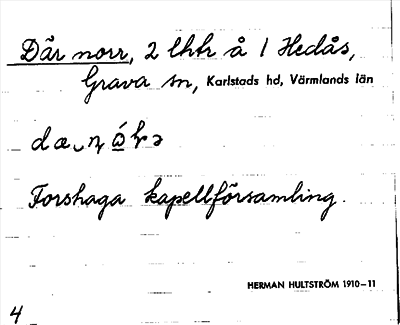 Där norr, 2 lhtr å 1 Hedås,
Grava sn, Karlstads hd, Värmlands län
Forshaga kapellförsamling.
HERMAN HULTSTRÖM 1910–11
4